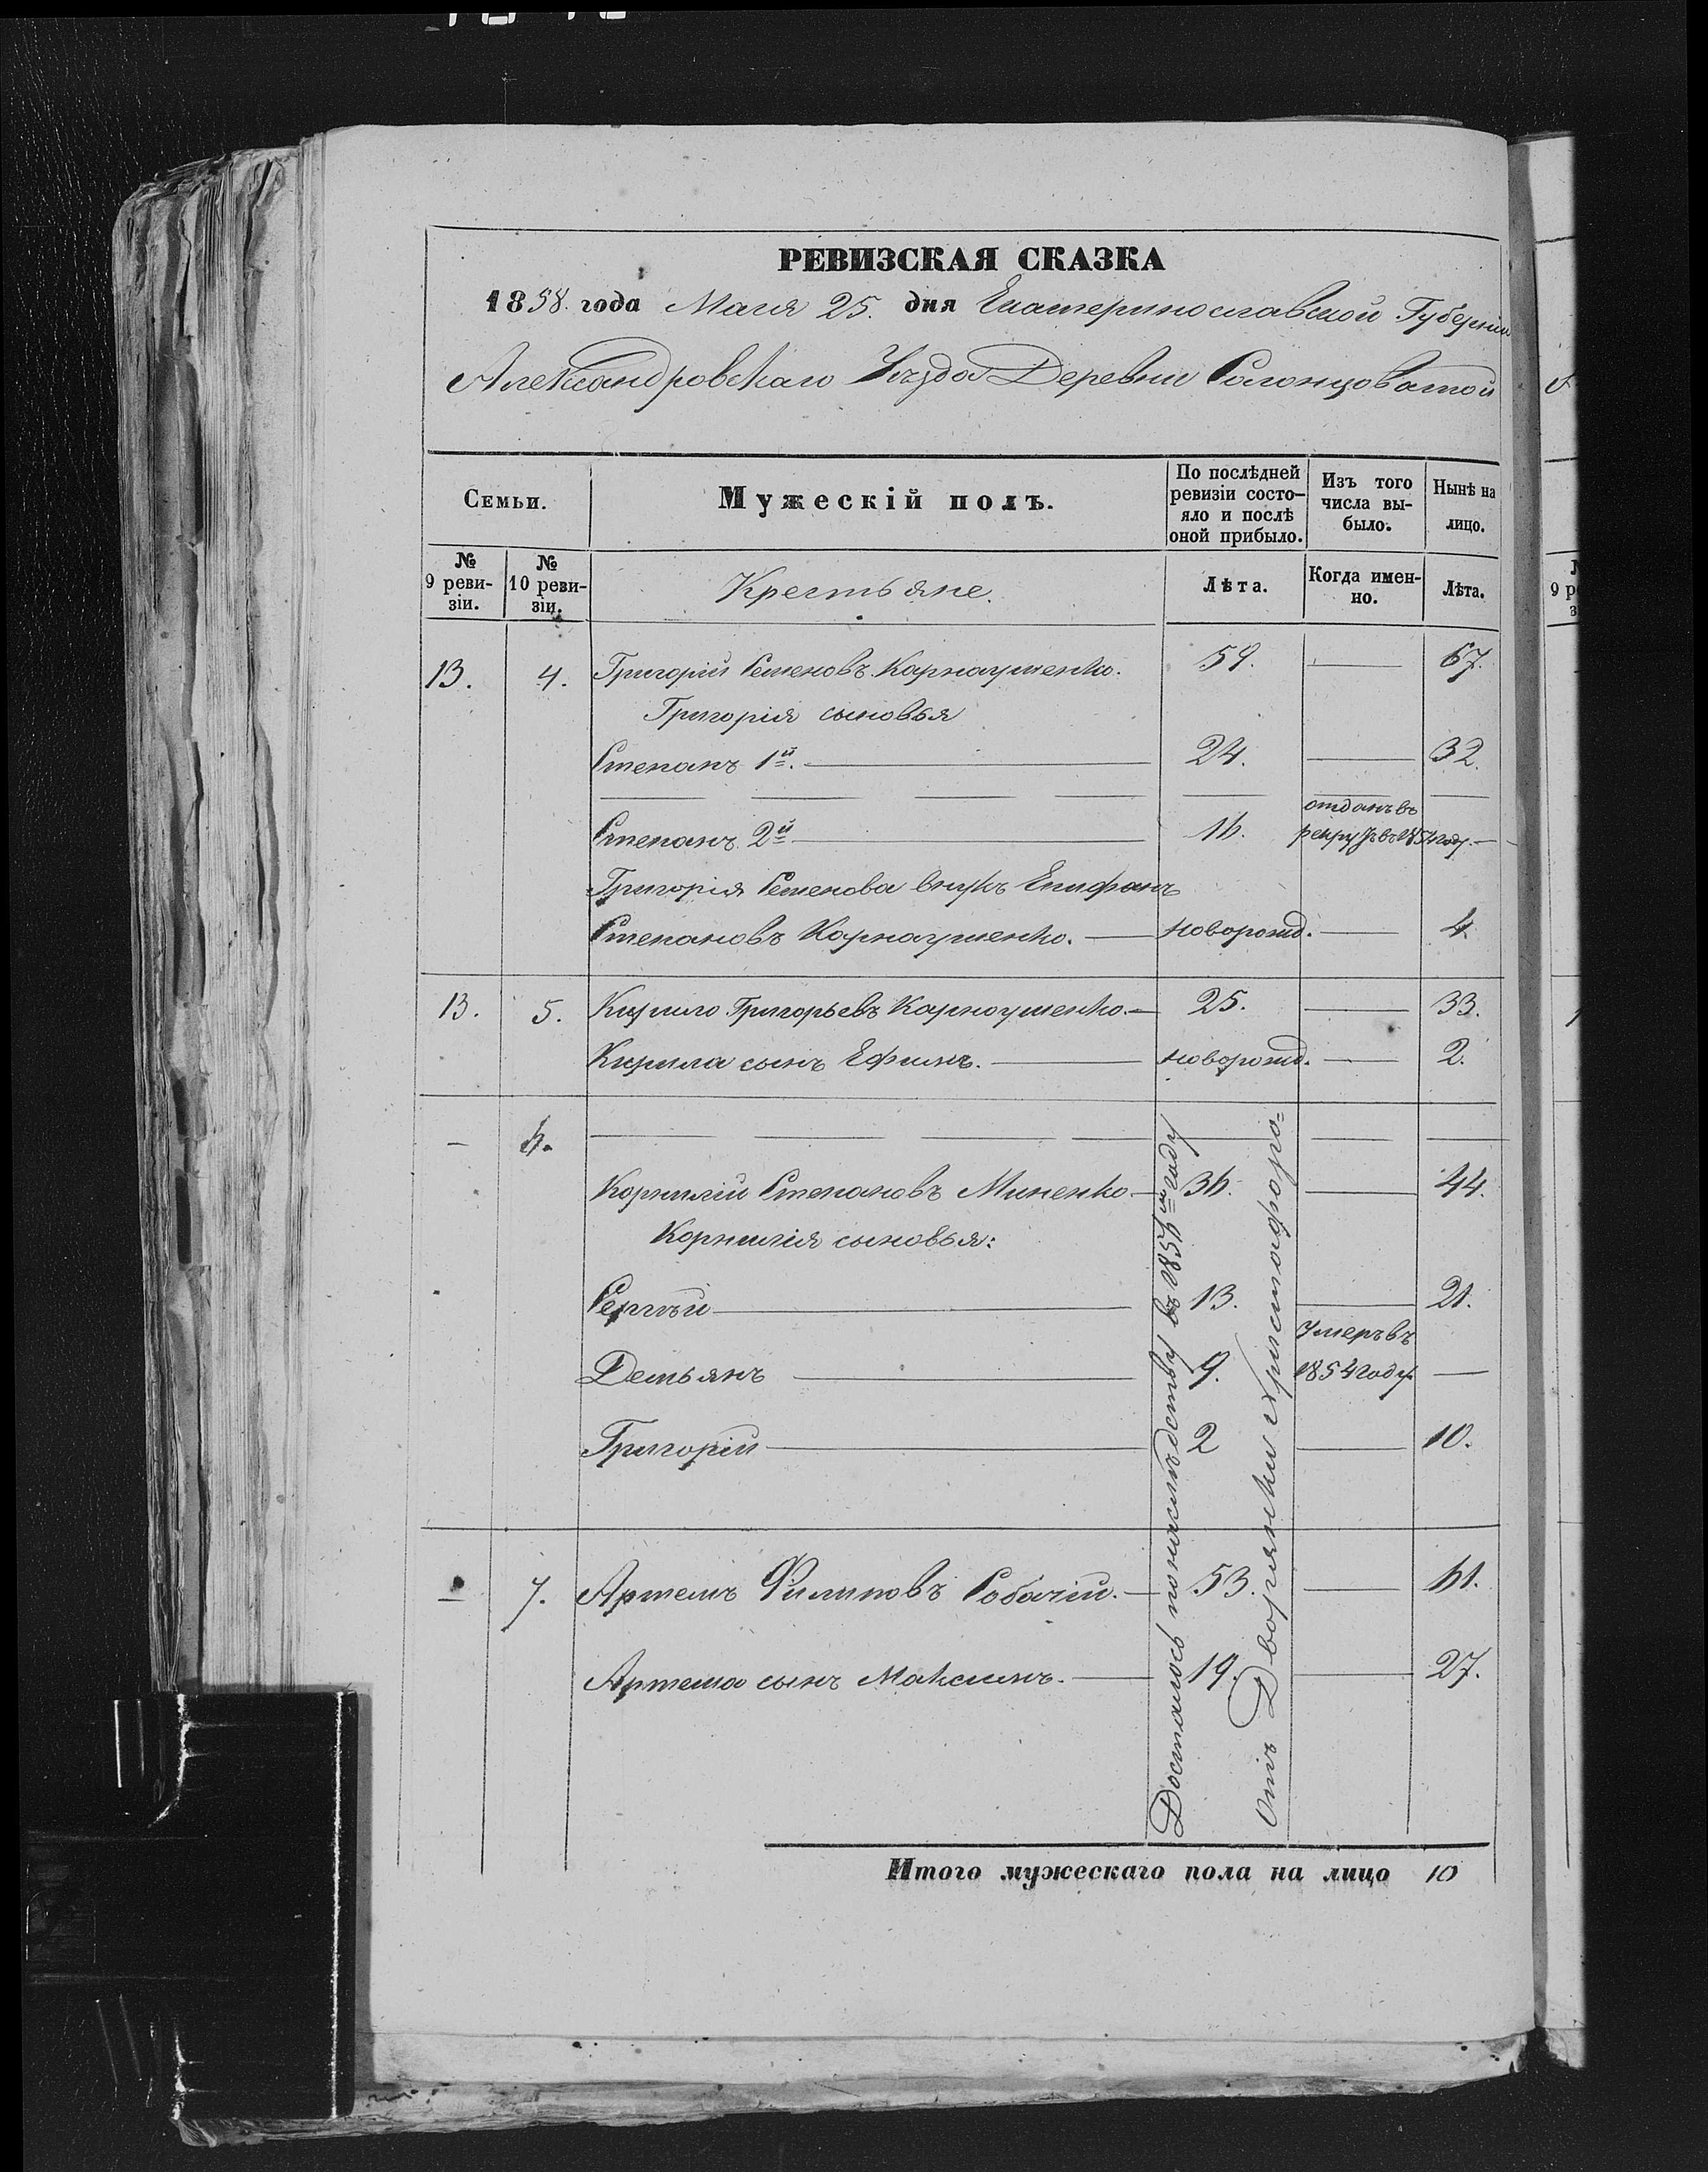 РЕВИЗСКАЯ СКАЗКА
1858. года Маия 25. дня Екатеринославской Губерніи
Александровскаго Уѣзда Деревни Солонцоватой
Семьи.
Мужескій полъ.
По послѣдней ревизіи состо-
яло и послѣ
оной прибыло.
Изъ того
числа вы-
было.
Нынѣ на
лицо.
№
9 реви-
зіи.
№
10 реви-
зіи.
Крестьяне.
Лѣта.
Когда имен-
но.
Лѣта.
13. 4. Григорій Семеновъ Карнаушенко. 59. — 67.
Григорія сыновья
Степанъ 1й. — 24. — 32.
Степанъ 2й — 16. отданъ въ рекруты въ 1854 году. —
Григорія Семенова внукъ Епифанъ
Степановъ Карнаушенко. — новорожд. — 4.
13. 5. Кирило Григорьевъ Карнаушенко. — 25. — 33.
Кирила сынъ Ефимъ. — новорожд. — 2.
— 6.
Корнилій Степановъ Миненко — 36. — 44.
Корнилія сыновья:
Сергѣй — 13. — 21.
Демьянъ — 9. Умеръ въ 1854 году. —
Григорій — 2 — 10.
— 7. Артемъ Филиповъ Собачій. — 53. — 61.
Артема сынъ Максимъ. — 19. — 27.
Достались по наслѣдству въ 1856м году
Отъ Дворянки Христофоро=
Итого мужескаго пола на лицо 10
№
9 ре